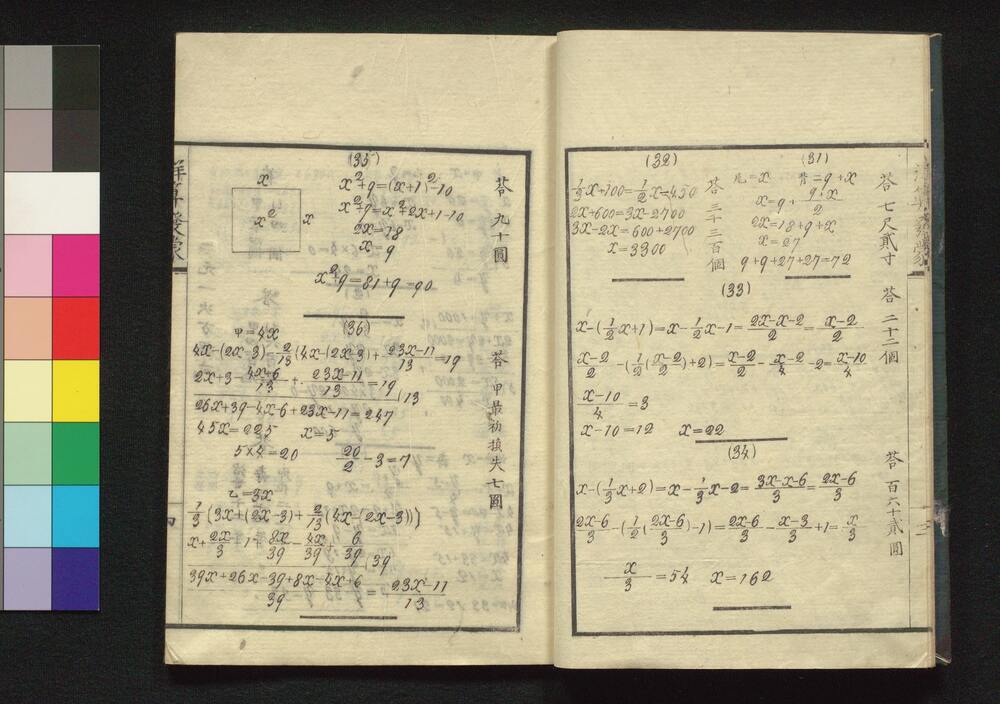 (31)
答 七尺貳寸
尾=x 背=9+x
x=9+\frac{9+x}{2}
2x=18+9+x
x=27
9+9+27+27=72
(32)
答 三千三百個
\frac{1}{3}x+100=\frac{1}{2}x-450
2x+600=3x-2700
3x-2x=600+2700
x=3300
(33)
答 二十二個
x-(\frac{1}{2}x+1)=x-\frac{1}{2}x-1=\frac{2x-x-2}{2}=\frac{x-2}{2}
\frac{x-2}{2}-(\frac{1}{2}(\frac{x-2}{2})+2)=\frac{x-2}{2}-\frac{x-2}{4}-2=\frac{x-10}{4}
\frac{x-10}{4}=3
x-10=12 x=22
(34)
答 百六十貳圓
x-(\frac{1}{3}x+2)=x-\frac{1}{3}x-2=\frac{3x-x-6}{3}=\frac{2x-6}{3}
\frac{2x-6}{3}-(\frac{1}{2}(\frac{2x-6}{3})-1)=\frac{2x-6}{3}-\frac{x-3}{3}+1=\frac{x}{3}
\frac{x}{3}=54 x=162
(35)
答 九十圓
x
x^2 x
x^2+9=(x+1)^2-10
x^2+9=x^2+2x+1-10
2x=18
x=9
x^2+9=81+9=90
(36)
答 甲最初損失七圓
甲=4x
4x-(2x-3)-\frac{2}{13}(4x-(2x-3))+\frac{23x-11}{13}=19
2x+3-\frac{4x+6}{13}+\frac{23x-11}{13}=19
(13
26x+39-4x-6+23x-11=247
45x=225 x=5
5×4=20 \frac{20}{2}-3=7
乙=3x
\frac{1}{3}(3x+(2x-3)+\frac{2}{13}(4x-(2x-3)))
x+\frac{2x}{3}-1+\frac{8x}{39}-\frac{4x}{39}+\frac{6}{39}
(39
\frac{39x+26x-39+8x-4x+6}{39}=\frac{23x-11}{13}